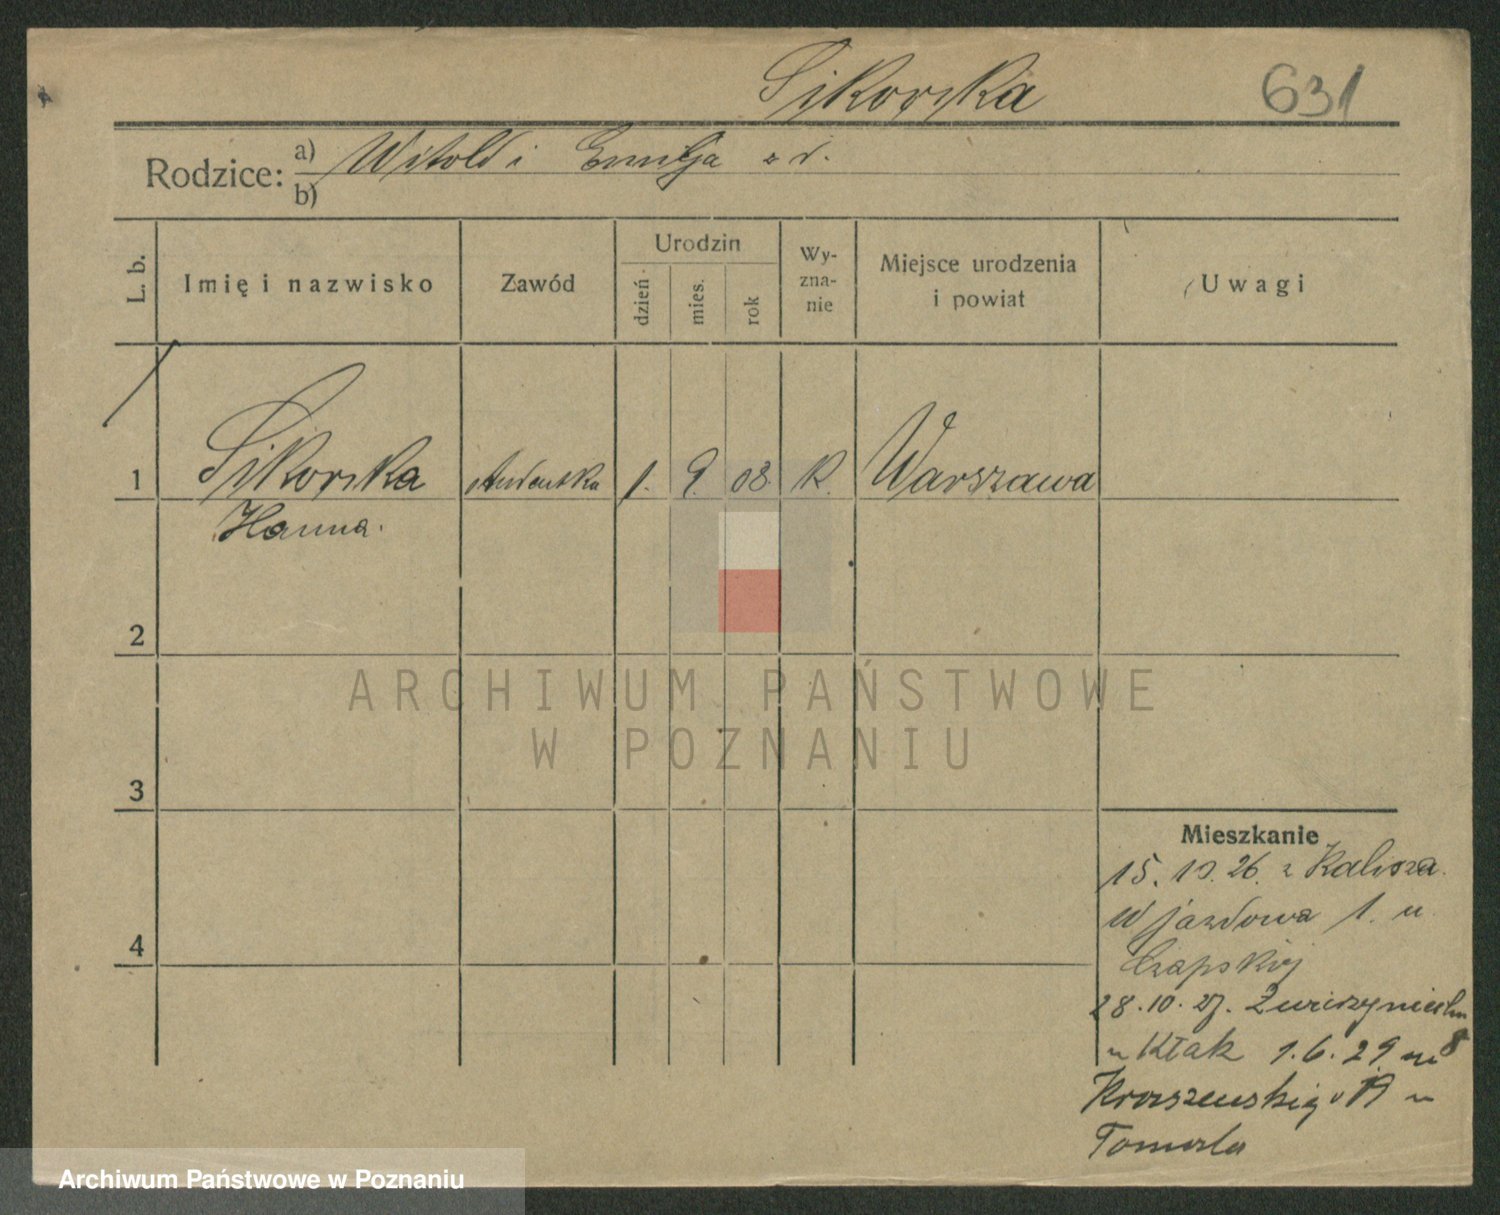 Sikorska
631
Rodzice: a) Witold i Emilja
b)
L. b.
Imię i nazwisko
Zawód
Urodzin
dzień
mies.
rok
Wy-
zna-
nie
Miejsce urodzenia
i powiat
Uwagi
1 Sikorska studentka 1. 9. 08. K. Warszawa
Hanna.
2
3
4
Mieszkanie
15. 10. 26. z Kalisza.
Wjazdowa 1. u
Czapskiej
28. 10. 27.
u Kłak 1. 6. 29 8
19 u
ARCHIWUM PAŃSTWOWE
W POZNANIU
Archiwum Państwowe w Poznaniu